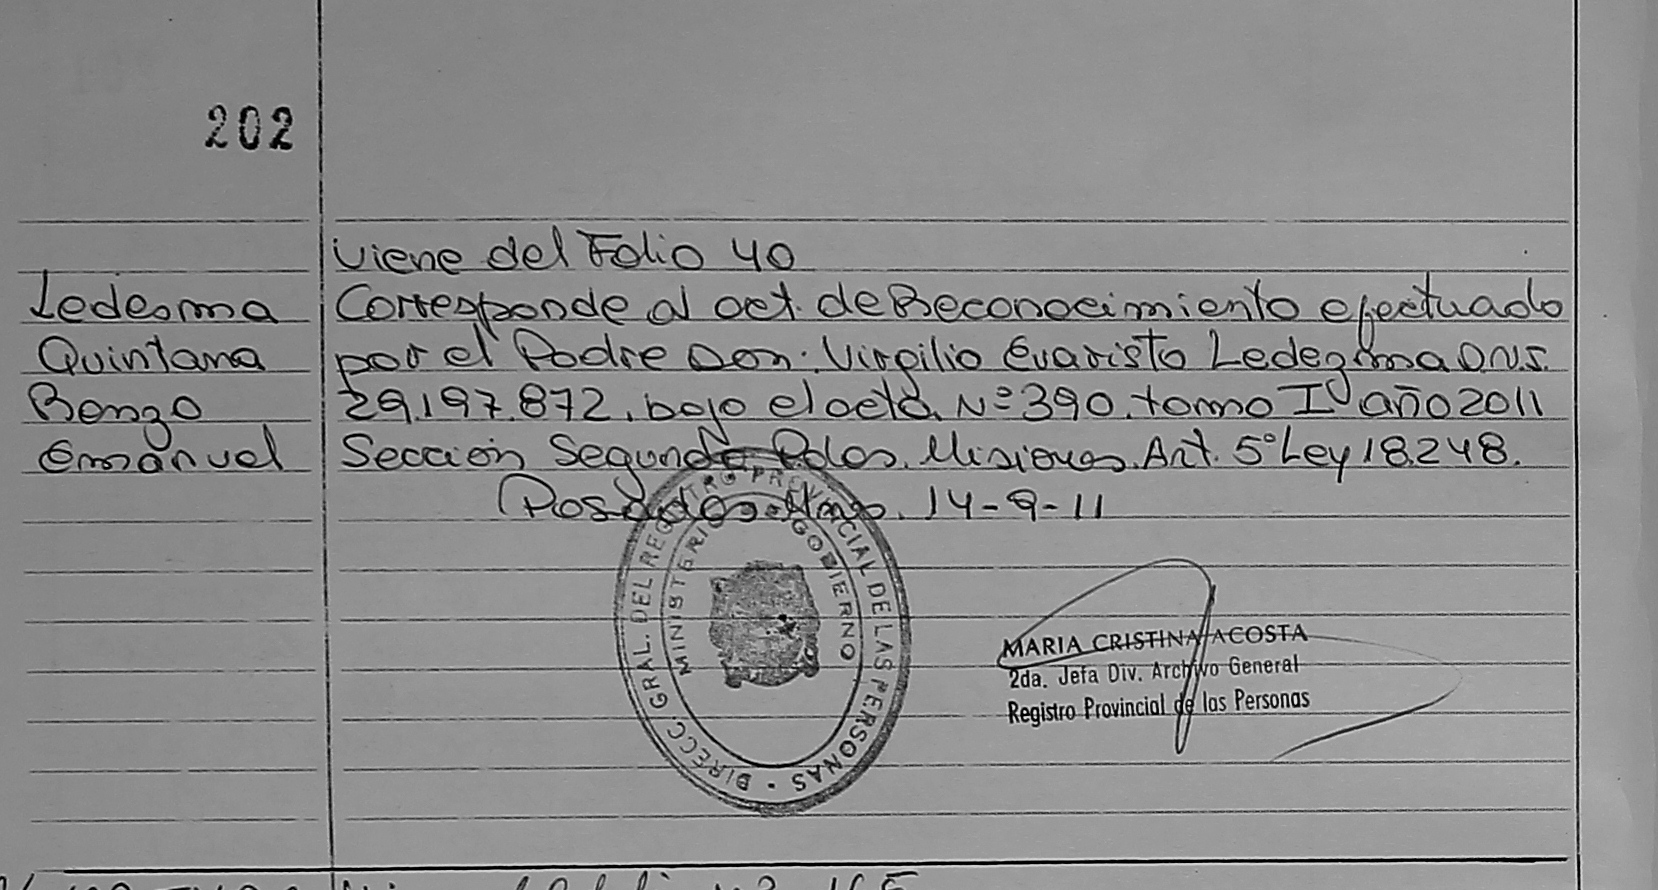 202
Viene del Folio 40
Ledesma
Quintana
Benzo
Emanuel
Corresponde al act. de Reconocimiento efectuado
por el Padre Don. Virgilio Evaristo Ledezma D.N.I.
29.197.872. bajo el acta Nº 390. tomo Iº año 2011
Sección Segunda Pdas. Misiones. Art. 5º Ley 18.248.
Posadas. Mnes. 14-9-11
DIRECC. GRAL. DEL REGISTRO PROVINCIAL DE LAS PERSONAS
MINISTERIO GOBIERNO
MARIA CRISTINA ACOSTA
2da. Jefa Div. Archivo General
Registro Provincial de las Personas